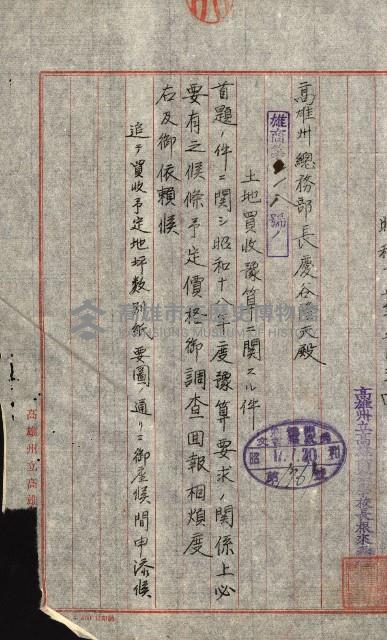 昭和
高雄州立高
校長根來
高雄州總務部長慶谷 夫殿
雄商
號ノ
土地買收豫算ニ關スル件
首題ノ件ニ関シ昭和十八年度豫算要求ノ関係上必
要有之候條予定價格御調査回報相煩度
右及御依頼候
追テ買收予定地坪數別紙要圖ノ通リニ御座候間申添候
昭和
17.7.20
高雄市立歷史博物館
KAOHSIUNG MUSEUM OF HISTORY
高雄州立高雄